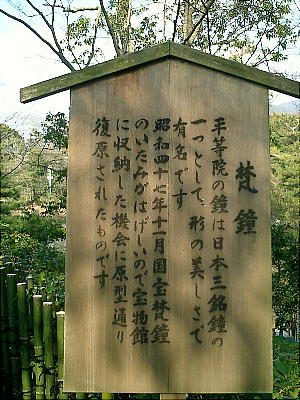 梵鐘
平等院の鐘は日本三銘鐘の
一つとして、形の美しさで
有名です
昭和四十七年十一月国宝梵鐘
のいたみがはげしいので宝物館
に収納した機会に原型通り
復原されたものです